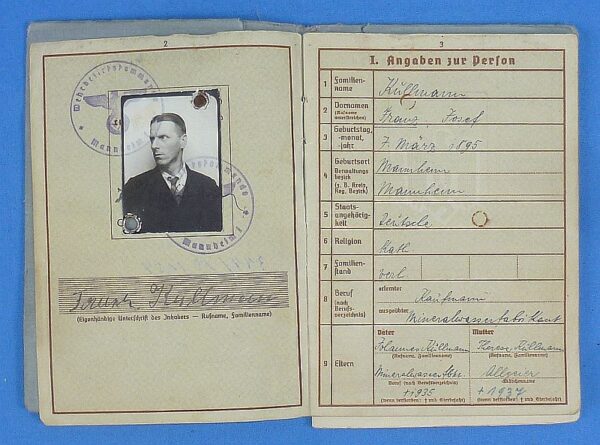 2
Wehrbezirkskommando
Mannheim I
Franz Kullmann
(Eigenhändige Unterschrift des Inhabers — Rufname, Familienname)
3
I. Angaben zur Person
1 Familien-
name
Kullmann
2 Vornamen
(Rufname
unterstreichen)
Franz Josef
3 Geburtstag,
-monat,
-jahr
7. März 1895
4 Geburtsort
Verwaltungs-
bezirk
(z. B. Kreis,
Reg. Bezirk)
Mannheim
Mannheim
5 Staats-
angehörig-
keit
6 Religion
Kath.
7 Familien-
stand
8 Beruf
(nach
Berufs-
verzeichnis)
erlernter
Kaufmann
ausgeübter
Mineralwasserfabrikant
9 Eltern
Vater
Johannes Kullmann
(Rufname, Familienname)
Beruf (nach Berufsverzeichnis)
† 1935
(wenn verstorben: † und Sterbejahr)
Mutter
Therese Kullmann
(Rufname, Familienname)
Allgeier
Mädchenname
† 1937
(wenn verstorben: † und Sterbejahr)